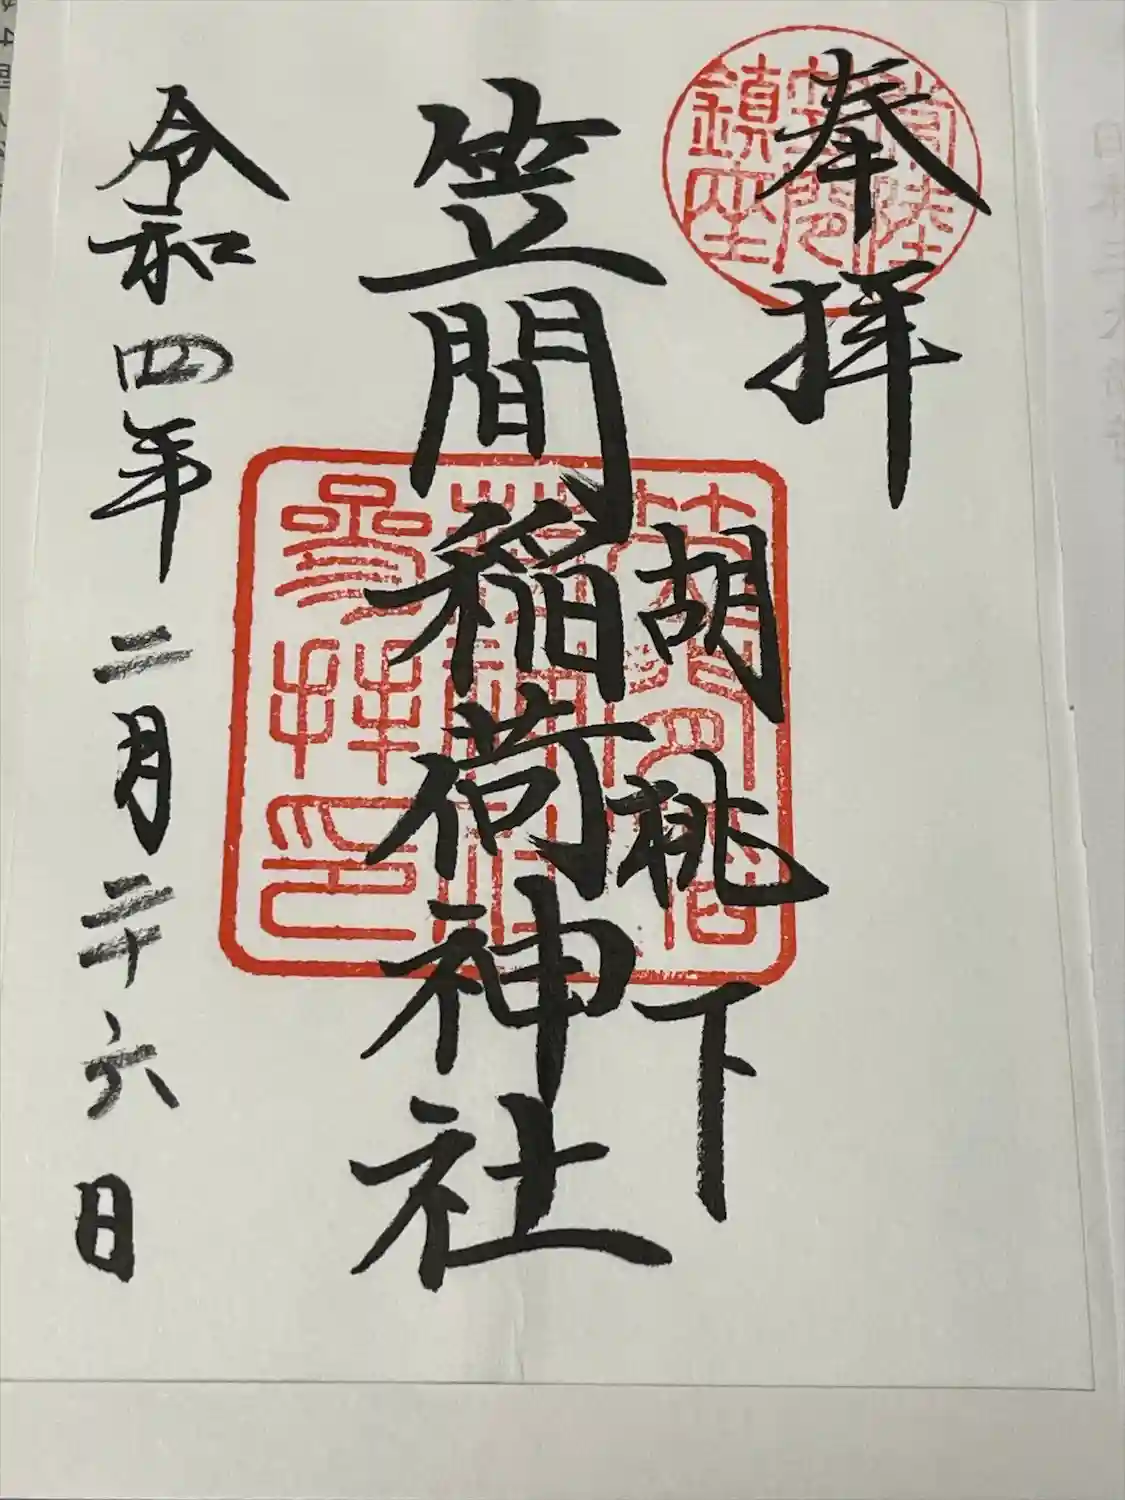 奉拝
常陸
笠間
鎮座
胡桃下
笠間稲荷神社
参拝印
令和四年二月二十六日